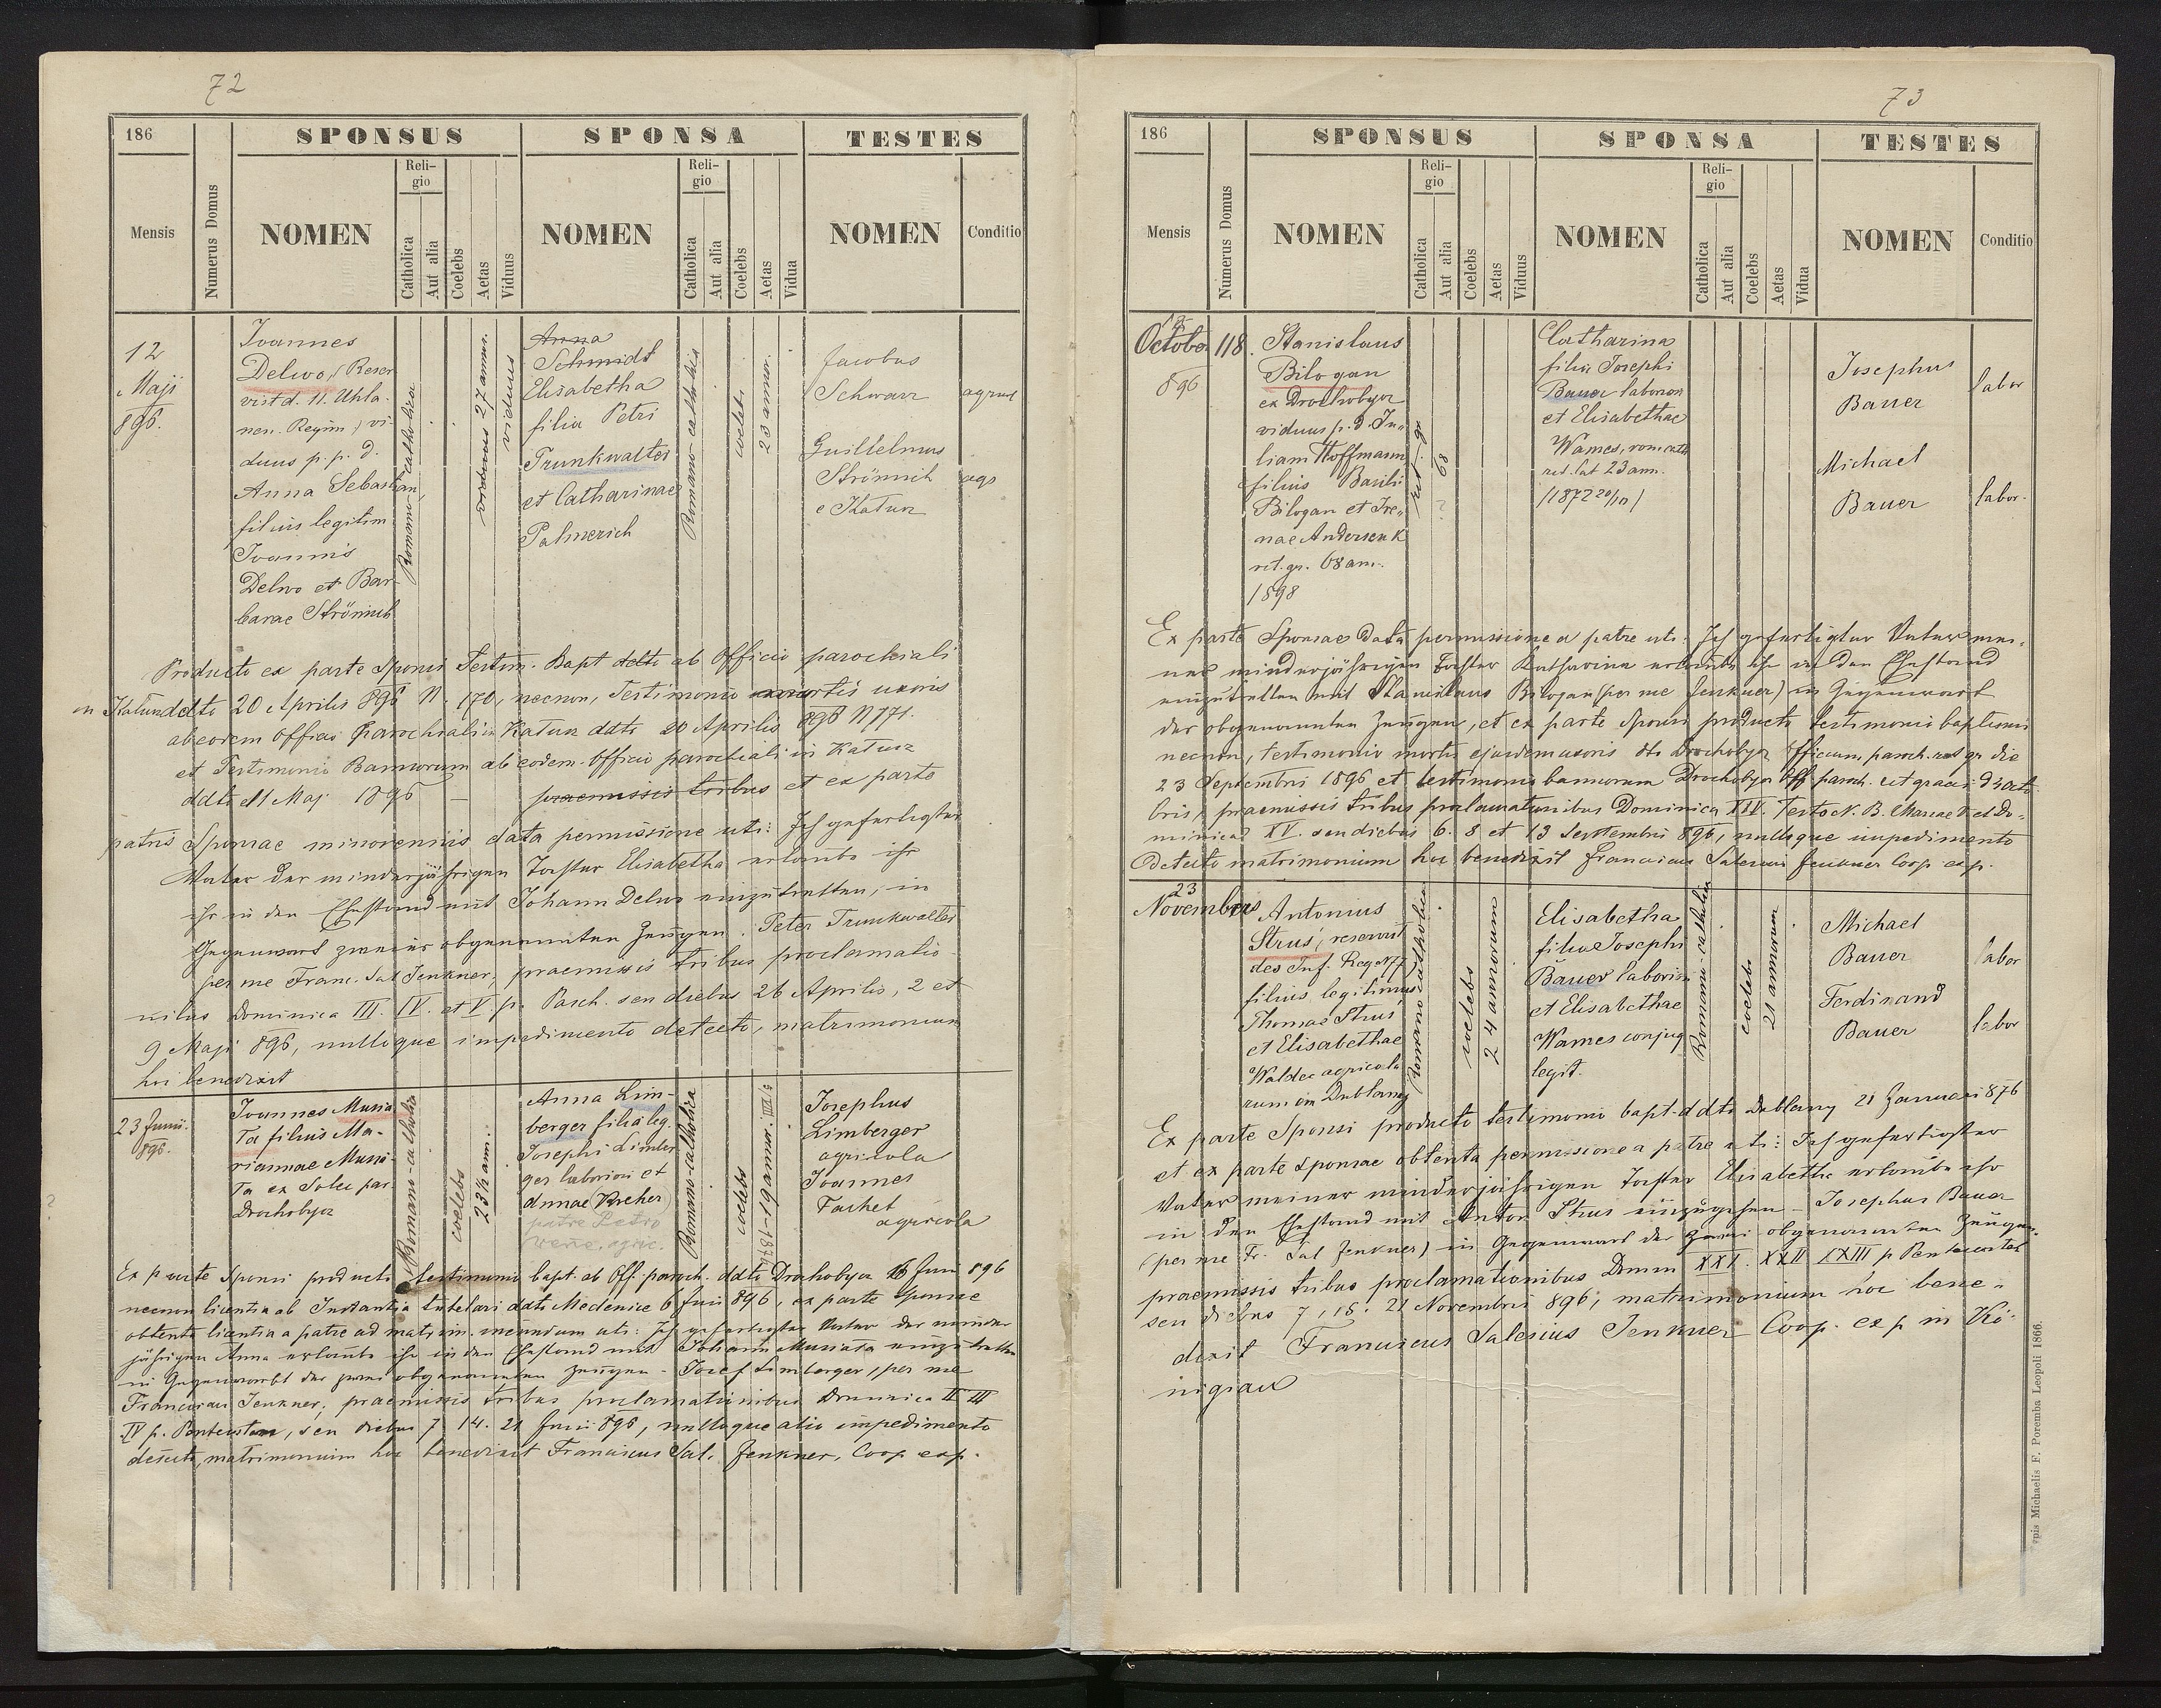 72
186
SPONSUS
SPONSA
TESTES
Mensis
Numerus Domus
NOMEN
Reli-
gio
Catholica
Aut alia
Coelebs
Aetas
Viduus
NOMEN
Reli-
gio
Catholica
Aut alia
Coelebs
Aetas
Vidua
NOMEN
Conditio
12
Maji
896.
Joannes
Delwo, (Reser
vist d. 11. Uhla-
nen. Regim) vi-
duus p. p. d.
Anna Sebastian,
filius legitim
Joannis
Delwo et Bar-
barae Strömich
Romano-catholica
viduus 27 annor.
viduus
Anna
Schmidt
Elisabetha
filia Petri
Trunkwalter
et Catharinae
Palmerich
Romano-catholica
coelebs
23 annor.
Jacobus
Schwarz
Guilelmus
Strömich
e Katun
Producto ex parte Sponsi Testim. Bapt ddto ab Officio parochiali
in Katun ddto 20 Aprilis 896 N. 170, necnon, Testimonio mortis uxoris
ab eodem officio parochiali in Katun ddto 20 Aprilis 896 N 171.
et Testimonio Bannorum ab eodem officio parochiali in Katun
ddto 11 Maj 1896 — praemissis tribus et ex parte
patris Sponsae minorennis data permissione uti: Ich gefertigter
Vater der minderjährigen Tochter Elisabetha erlaube ihr
ihr in den Ehestand mit Johann Delwo einzutretten, in
Gegenwart zweier obgenannten Zeugen. Peter Trunkwalter
per me Franc. Sal Jenkner, praemissis tribus proclamatio-
nibus Dominica III. IV. et V p. Pasch. seu diebus 26 Aprilis, 2 et
9 Maji 896, nulloque impedimento detecto, matrimonium
hoc benedixit
23 Junii.
896.
Joannes Musia
Ta filius Ma-
riannae Musia-
Ta ex Solec par.
Drohobycz
Romano-catholica
coelebs
23½ ann.
Anna Lim-
berger filia leg.
Josephi Limber
ger laborioi et
Annae Kreher
patre Petro
Romano-catholica
coelebs
Josephus
Limberger
agricola
Joannes
agricola
Ex parte Sponsi producto testimonio bapt. ab Off. paroch. ddto Drohobycz 16 Juni 896
necnon licentia ab Instantia tutelari ddto Medenice 6 Juni 896, ex parte sponsae
obtenta licentia a patre ad matrim. ineundum uti: Ich gefertigter Vater der minder
jährigen Anna erlaube ihr in den Ehestand mit Johann Musiata einzutretten
in Gegenwart der zwei obgenannten Zeugen - Josef Limberger, per me
Franciscus Jenkner, praemissis tribus proclamationibus Dominica II III
IV p. Pentecosten, seu diebus 7. 14. 21 Junii 896, nulloque alio impedimento
detecto, matrimonium hoc benedixit Franciscus Sal. Jenkner, Coop. exp.
73
186
SPONSUS
SPONSA
TESTES
Mensis
Numerus Domus
NOMEN
Reli-
gio
Catholica
Aut alia
Coelebs
Aetas
Viduus
NOMEN
Reli-
gio
Catholica
Aut alia
Coelebs
Aetas
Vidua
NOMEN
Conditio
October
896
118.
Stanislaus
Bilogan
ex Drohobycz
viduus p. d. Ju-
liam Hoffmann,
filius Basili
Bilogan et Ire-
nae Andersenk
rit. gr. 68 ann.
1898
rit. gr
68
?
Catharina
filia Josephi
Bauer laborion
et Elisabethae
Wames, rom cath
rit. lat 23 ann.
Josephus
Bauer
labor
Michael
Bauer
labor.
Ex parte Sponsae data permissione a patre uti: Ich gefertigter Vater mei-
ner minderjährigen Tochter Katharina erlaube ihr in den Ehestand
einzutretten mit Stanislaus Bilogan (per me Jenkner) in Gegenwart
der obgenannten Zeugen, et ex parte Sponsi producto testimonio baptismi
necnon, testimonio mortis ejusdem uxoris dto Drohobycz Officium paroch. rit. gr die
23 Septembri 1896 et testimonio bannorum Drohobycz Off. paroch. rit graeci d 3 Octo-
bris, praemissis tribus proclamationibus Dominica XIV. Festo N. B. Mariae V. et Do-
minica XV. seu diebus 6. 8 et 13 Septembri 896, nulloque impedimento
detecto matrimonium hoc benedixit Franciscus Salesius Jenkner Coop. exp.
23
Novembris
Antonius
Strus, reservist
des Inf. Reg N 77
filius legitimus
Thomae Strus
et Elisabethae
Waldec agricola
rum in Dublany
Romano catholica
coelebs
24 annorum
Elisabetha
filia Josephi
Bauer laborios
et Elisabethae
Wames conjug
legit.
Romano-catholica
coelebs
21 annorum
Michael
Bauer
labor
Ferdinand
Bauer
labor
Ex parte Sponsi producto testimonio bapt. ddto Dublany 21 Januari 876
et ex parte Sponsae obtenta permissione a patre uti: Ich gefertigter
Vater meiner minderjährigen Tochter Elisabetha erlaube ihr
in den Ehestand mit Anton Strus einzugehen - Josephus Bauer
(per me Fr. Sal Jenkner) in Gegenwart der zwei obgenannten Zeugen.
praemissis tribus proclamationibus Domin XXI. XXII XXIII p Pentecosten
seu diebus 7, 15. 21 Novembris 896; matrimonium hoc bene-
dixit Franciscus Salesius Jenkner Coop. exp in Kö-
nigsau
ypis Michaelis F. Poremba Leopoli 1866.